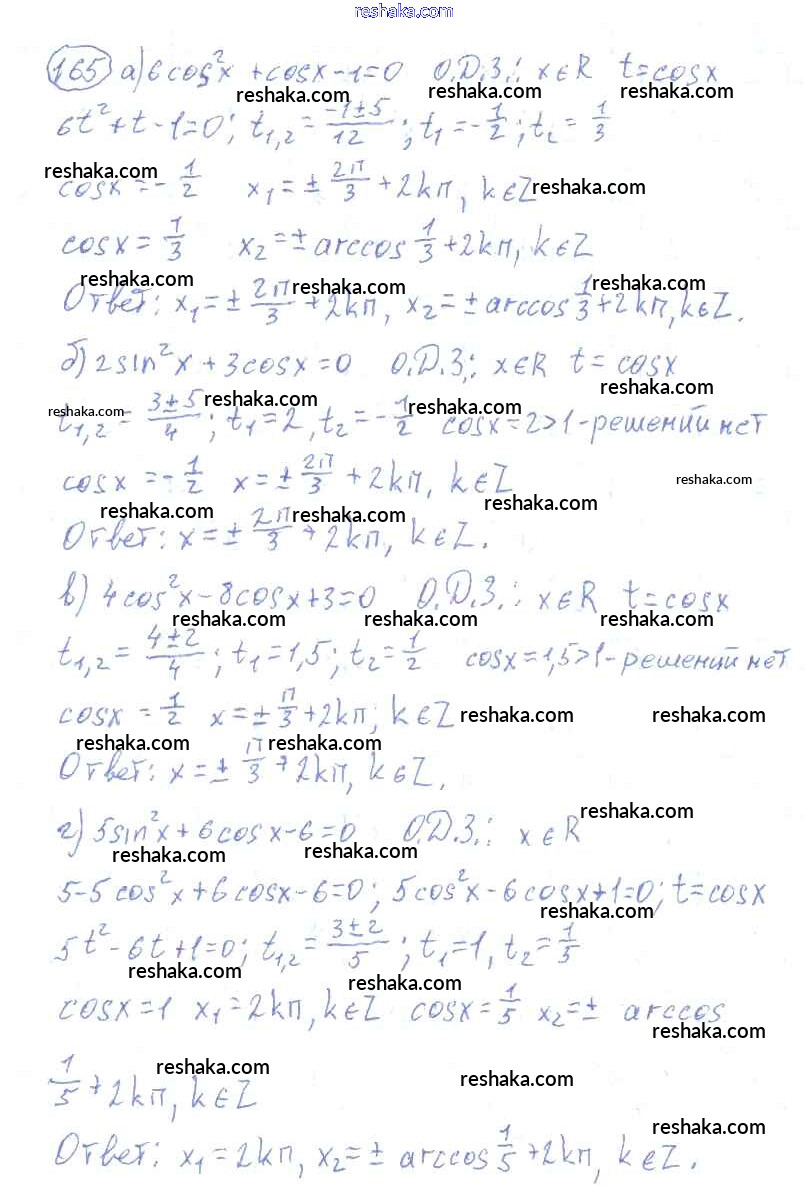 reshaka.com
165 а) 6cos²x + cosx - 1 = 0 О.Д.З.: x∈R t = cosx
reshaka.com reshaka.com reshaka.com
6t² + t - 1 = 0; t₁,₂ = (-1 ± 5)/12; t₁ = -1/2; t₂ = 1/3
reshaka.com reshaka.com
cosx = -1/2 x₁ = ± 2π/3 + 2kπ, k∈Z
cosx = 1/3 x₂ = ± arccos 1/3 + 2kπ, k∈Z
reshaka.com reshaka.com reshaka.com
Ответ: x₁ = ± 2π/3 + 2kπ, x₂ = ± arccos 1/3 + 2kπ, k∈Z.
б) 2sin²x + 3cosx = 0 О.Д.З.: x∈R t = cosx
reshaka.com
reshaka.com reshaka.com reshaka.com
t₁,₂ = (3 ± 5)/4; t₁ = 2, t₂ = -1/2 cosx = 2 > 1 - решений нет
cosx = -1/2 x = ± 2π/3 + 2kπ, k∈Z
reshaka.com
reshaka.com reshaka.com reshaka.com
Ответ: x = ± 2π/3 + 2kπ, k∈Z.
в) 4cos²x - 8cosx + 3 = 0 О.Д.З.: x∈R t = cosx
reshaka.com reshaka.com reshaka.com
t₁,₂ = (4 ± 2)/4; t₁ = 1,5; t₂ = 1/2 cosx = 1,5 > 1 - решений нет
cosx = 1/2 x = ± π/3 + 2kπ, k∈Z
reshaka.com reshaka.com
reshaka.com reshaka.com
Ответ: x = ± π/3 + 2kπ, k∈Z.
reshaka.com
г) 5sin²x + 6cosx - 6 = 0 О.Д.З.: x∈R
reshaka.com reshaka.com
5 - 5cos²x + 6cosx - 6 = 0; 5cos²x - 6cosx + 1 = 0; t = cosx
reshaka.com
5t² - 6t + 1 = 0; t₁,₂ = (3 ± 2)/5; t₁ = 1, t₂ = 1/5
reshaka.com reshaka.com
cosx = 1 x₁ = 2kπ, k∈Z cosx = 1/5 x₂ = ± arccos
reshaka.com
reshaka.com reshaka.com
1/5 + 2kπ, k∈Z
reshaka.com
Ответ: x₁ = 2kπ, x₂ = ± arccos 1/5 + 2kπ, k∈Z.